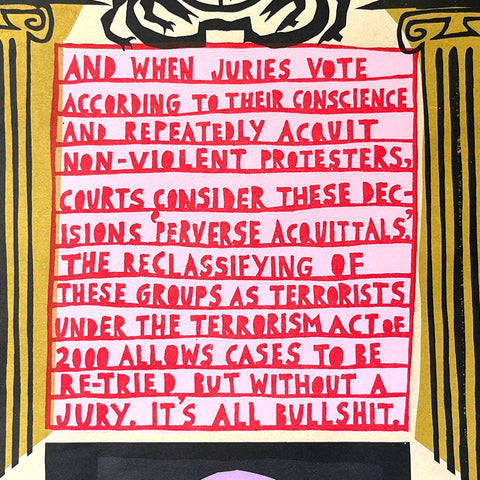 AND WHEN JURIES VOTE
ACCORDING TO THEIR CONSCIENCE
AND REPEATEDLY ACQUIT
NON-VIOLENT PROTESTERS,
COURTS CONSIDER THESE DEC-
ISIONS 'PERVERSE ACQUITTALS,'
THE RECLASSIFYING OF
THESE GROUPS AS TERRORISTS
UNDER THE TERRORISM ACT OF
2000 ALLOWS CASES TO BE
RE-TRIED BUT WITHOUT A
JURY. IT'S ALL BULLSHIT.